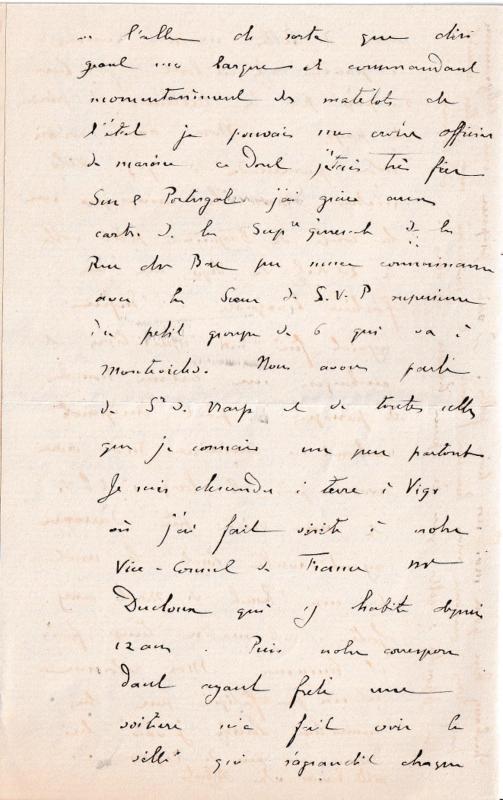 l'allée de sorte que diri
geant ma barque et commandant
momentanément des matelots de
l'état je pouvais me croire officier
de marine ce dont j'étais très fier
Sur le Portugal j'ai grâce aux
carte de la Sup^re générale de la
Rue du Bac pu nouer connaissance
avec la Sœur de S.V.P supérieure
du petit groupe de 6 qui va à
Montevideo. Nous avons parlé
de Sr de et de toutes celles
que je connais un peu partout
Je suis descendu à terre à Vigo
où j'ai fait visite à notre
Vice-Consul de France Mr
Ducloux qui y habite depuis
12 ans. Puis notre correspon
dant ayant frété une
voiture m'a fait voir la
ville qui s'agrandit chaque